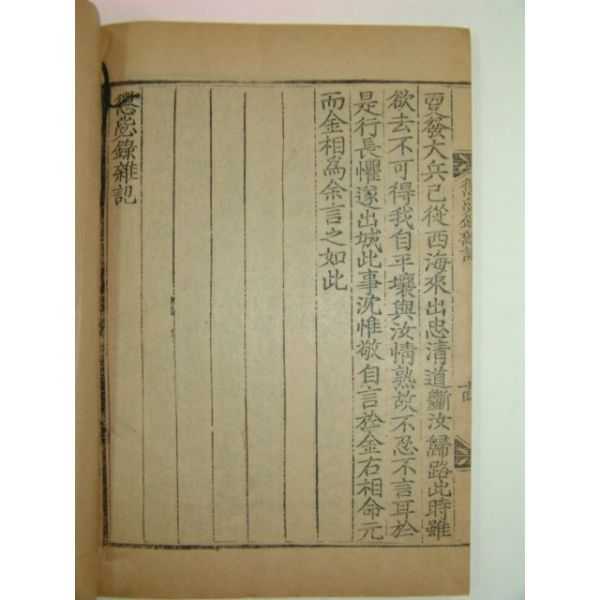 懲毖錄雜記
更發大兵已從西海來出忠清道斷汝歸路此時雖
欲去不可得我自平壤與汝情熟故不忍不言耳於
是行長懼遂出城此事沈惟敬自言於金右相命元
而金相爲余言之如此
懲毖錄雜記